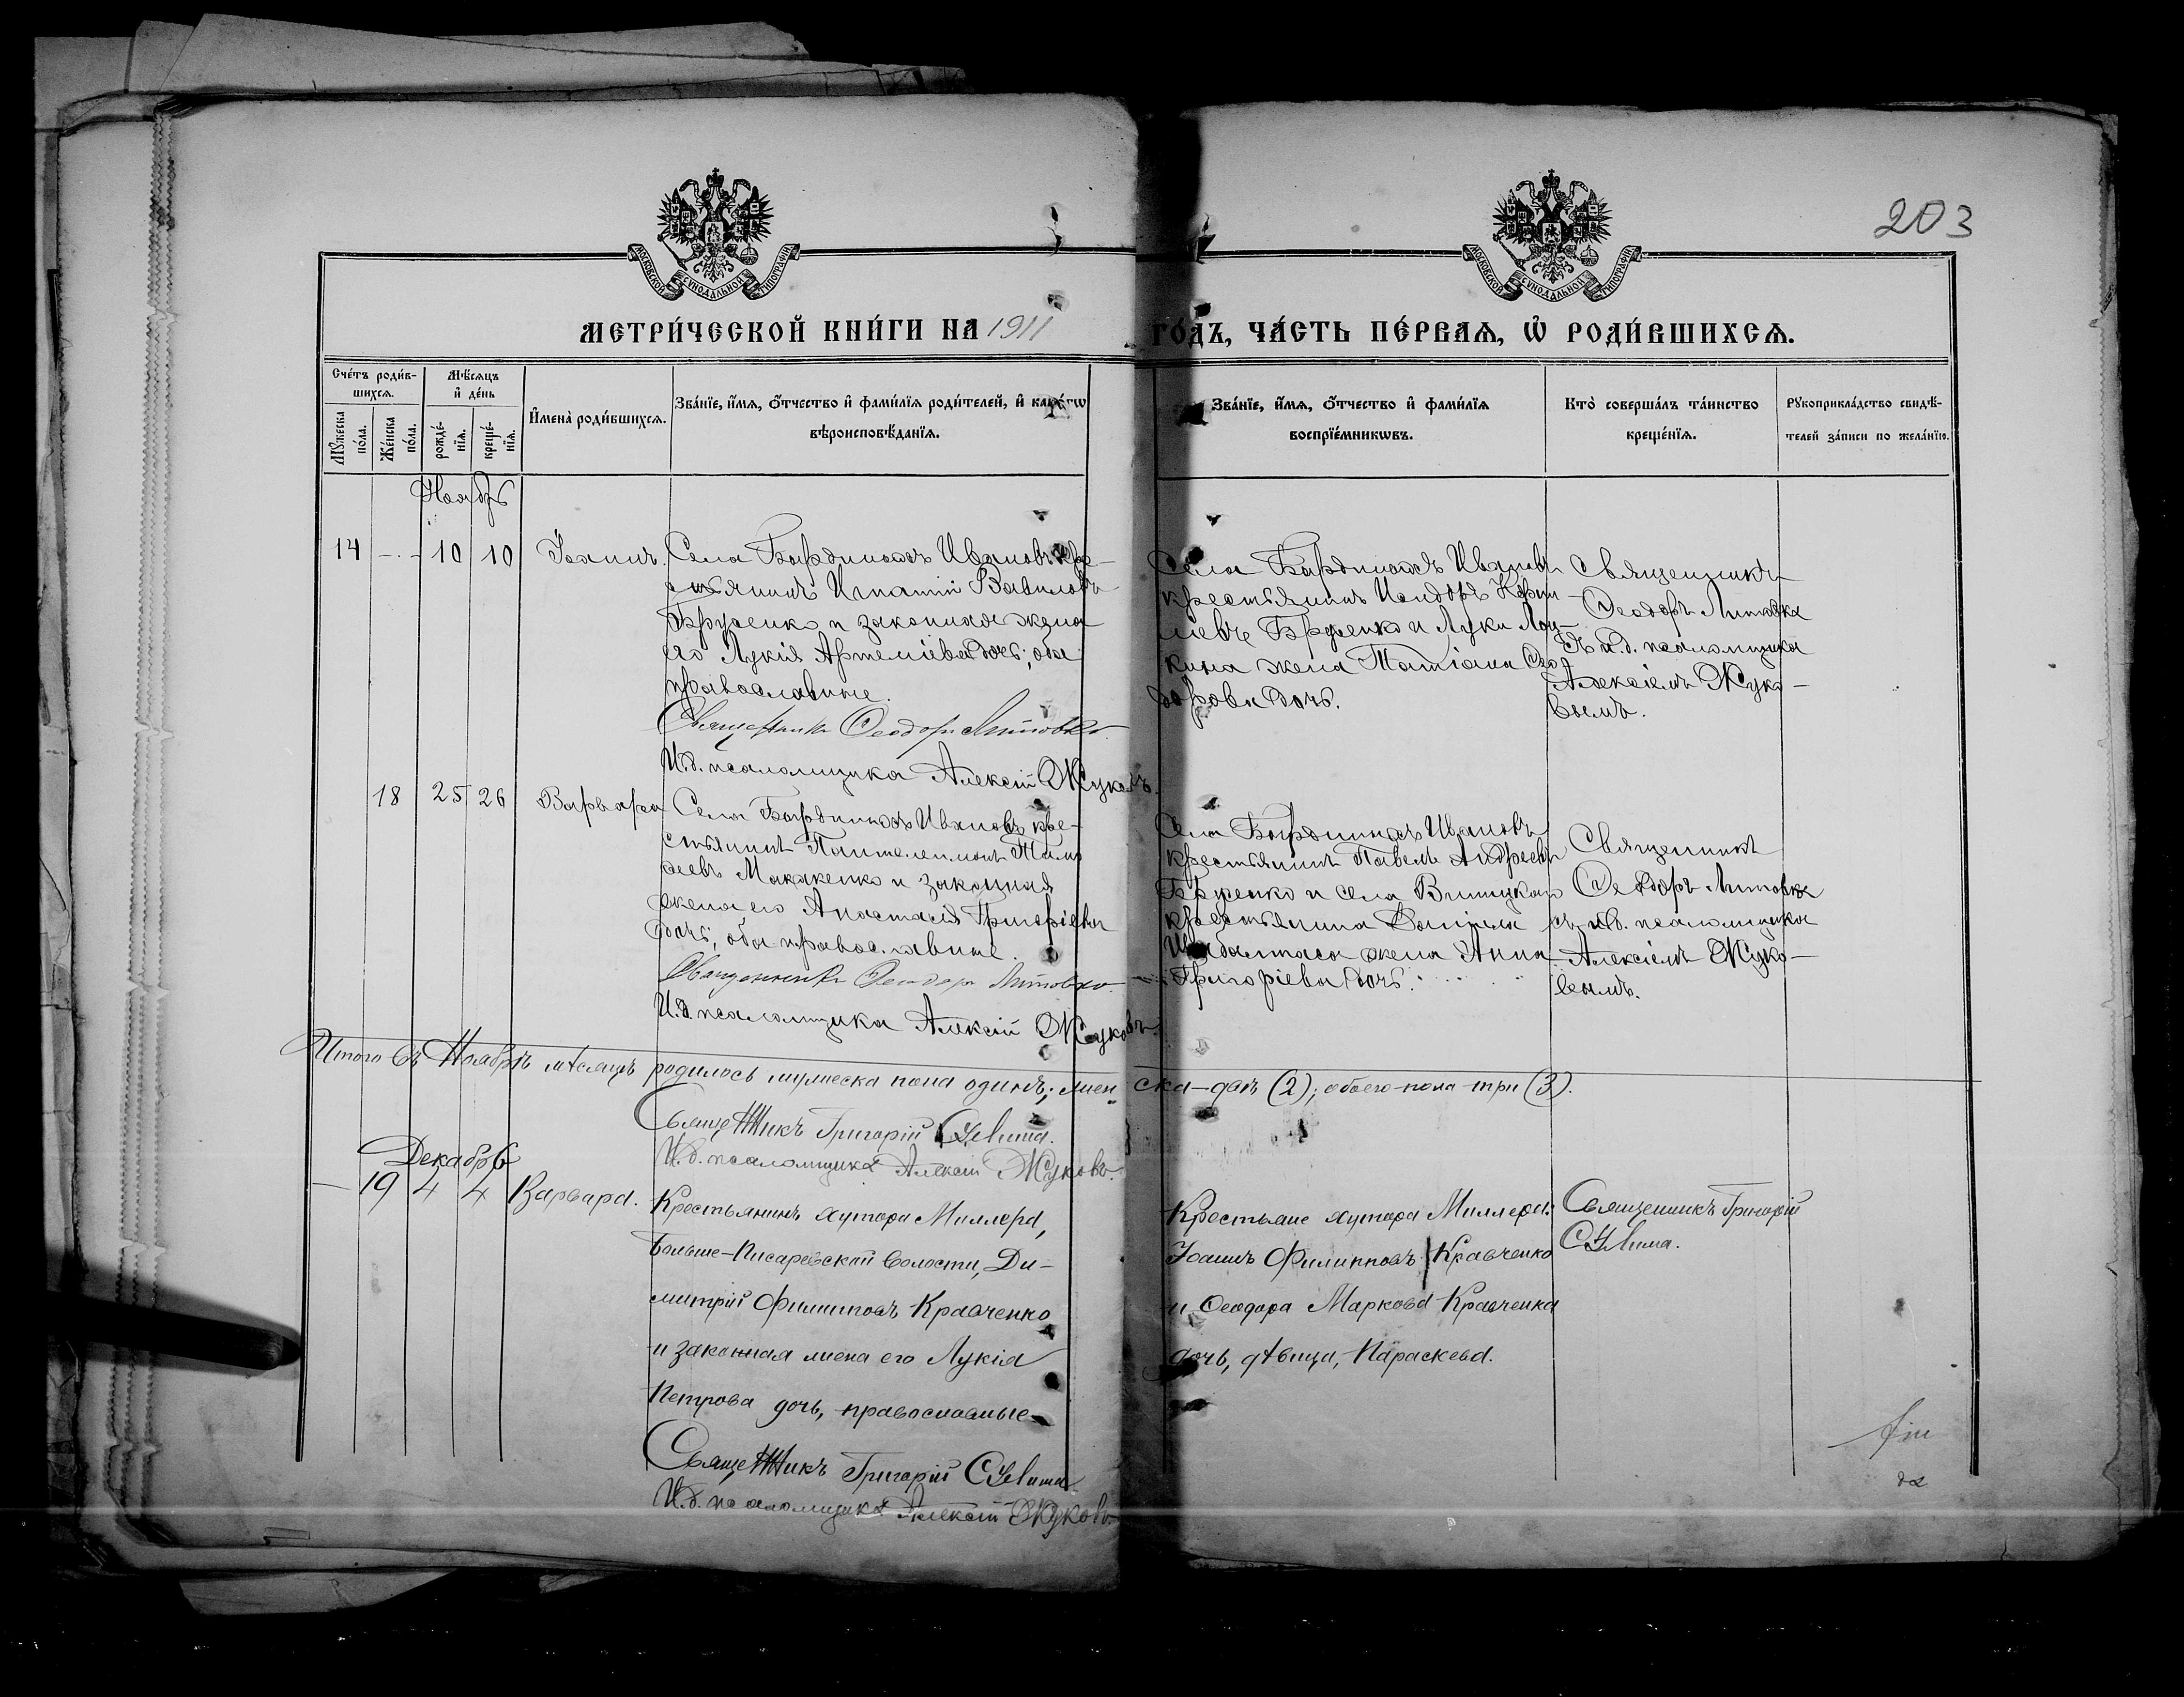 203
МОСКОВСКОЙ СѴНОДАЛЬНОЙ ТИПОГРАФІИ
МОСКОВСКОЙ СѴНОДАЛЬНОЙ ТИПОГРАФІИ
МЕТРИ́ЧЕСКОЙ КНИ́ГИ НА 1911 ГО́ДЪ, ЧА́СТЬ ПЕ́РВАѦ, Ѡ҆ РОДИ́ВШИХСѦ.
Сче́тъ роди́в-
шихсѧ.
Мꙋ́жеска
по́ла.
Же́нска
по́ла.
Мѣ́сѧцъ
и҆ де́нь
рожде́-
нїѧ.
креще́-
нїѧ.
И҆мена̀ роди́вшихсѧ.
Зва́нїе, и҆́мѧ, ѻ҆́тчество и҆ фами́лїѧ роди́телей, и҆ како́гѡ
вѣроисповѣ́данїѧ.
Зва́нїе, и҆́мѧ, ѻ҆́тчество и҆ фами́лїѧ
воспрїе́мникѡвъ.
Кто̀ соверша́лъ та́инство
креще́нїѧ.
Рꙋкоприкла́дство свидѣ́-
телей за́писи по жела́нїю.
Ноябрь
14 - . - 10 10 Іоаннъ.
Села
крестьянинъ Игнатій Вавиловъ
Бруенко и законная жена
его Лукія Артеміева дочь; оба
православные.
Священникъ Ѳеодоръ Литовко
И.д. псаломщика Алексій Жуковъ.
Села
крестьянинъ Исидоръ
Бруенко и Луки
жена Татіана Ѳео-
дорова дочь.
Священникъ
Ѳеодоръ Литовка
съ и.д. псаломщика
Алексіемъ Жуко-
вымъ.
18 25 26 Варвара
Села кре-
стьянинъ Пантелеимонъ Тимо-
феевъ Макаренко и законная
жена его Анастасія Григоріева
дочь; оба православные.
Священникъ Ѳеодоръ Литовко.
И.д. псаломщика Алексій Жуковъ.
Села
крестьянинъ Павелъ Андреевъ
Бруенко и села
крестьянина
жена Анна
Григоріева дочь.
Священникъ
Ѳеодоръ Литовка
съ и.д. псаломщика
Алексіемъ Жуко-
вымъ.
Итого въ Ноябрѣ мѣсяцѣ родилось мужеска пола одинъ; жен ска-двѣ (2); обоего пола три (3).
Священникъ Григорій
И.д. псаломщика Алексій Жуковъ.
Декабрь
— 19 4 4 Варвара.
Крестьянинъ хутора Миллера,
Больше-Писаревской волости, Ди-
митрій Филипповъ Кравченко
и законная жена его Лукія
Петрова дочь, православные
Священникъ Григорій
И.д. псаломщика Алексій Жуковъ
Крестьяне хутора Миллера:
Іоаннъ Филипповъ Кравченко
и Ѳеодора Маркова Кравченка
дочь, дѣвица, Параскева.
Священникъ Григорій